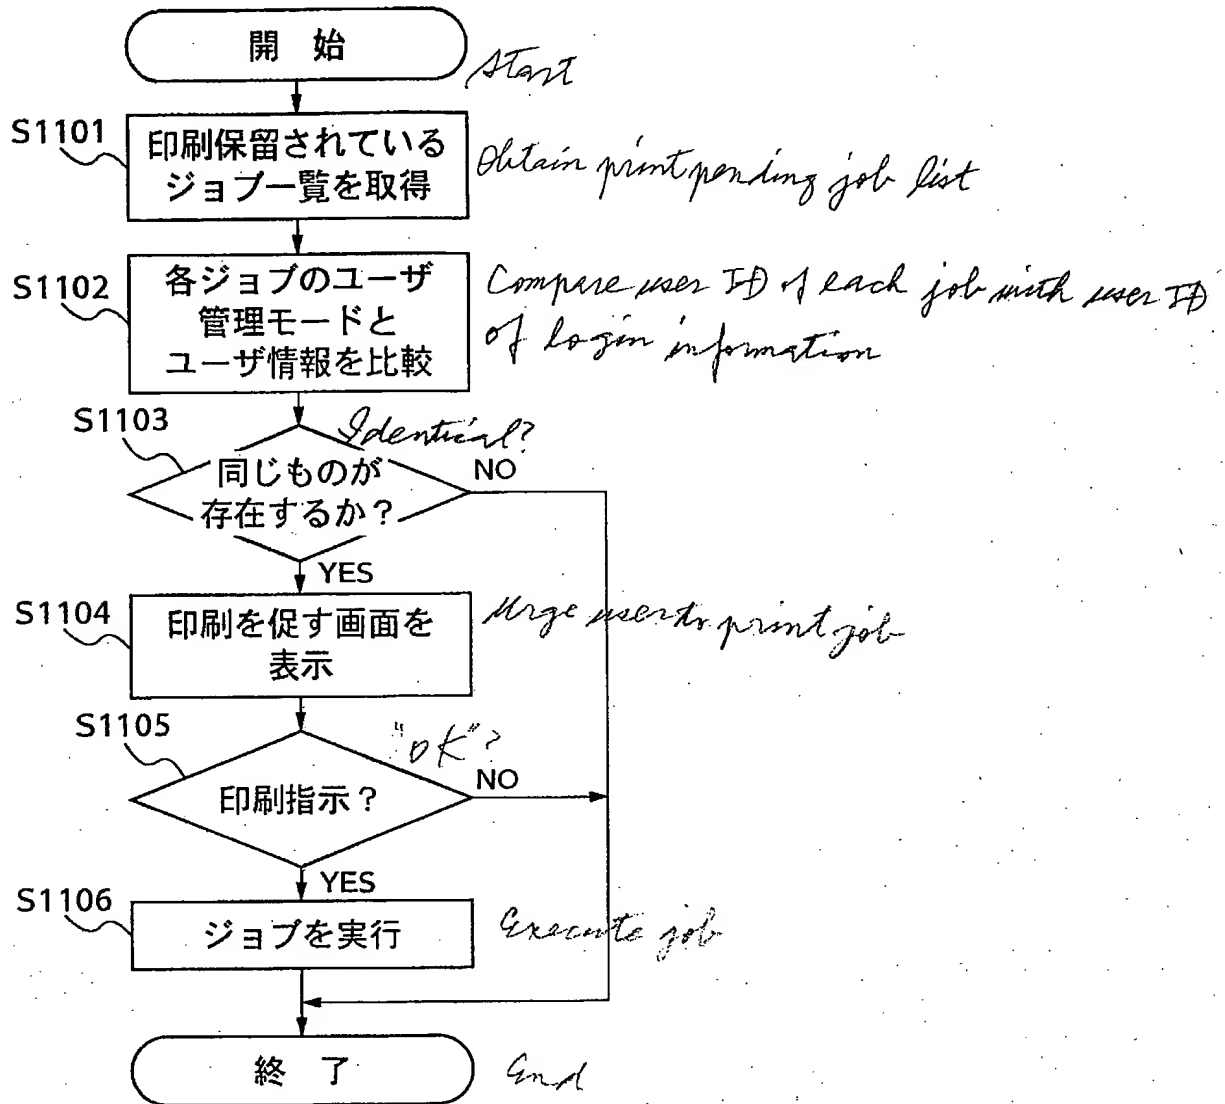 開 始
Start
S1101
印刷保留されている
ジョブ一覧を取得
Obtain print pending job list
S1102
各ジョブのユーザ
管理モードと
ユーザ情報を比較
Compare user ID of each job with user ID
of login information
S1103
Identical?
同じものが
存在するか?
NO
YES
S1104
印刷を促す画面を
表示
Urge user to print job
S1105
"OK"?
印刷指示?
NO
YES
S1106
ジョブを実行
Execute job
終 了
End